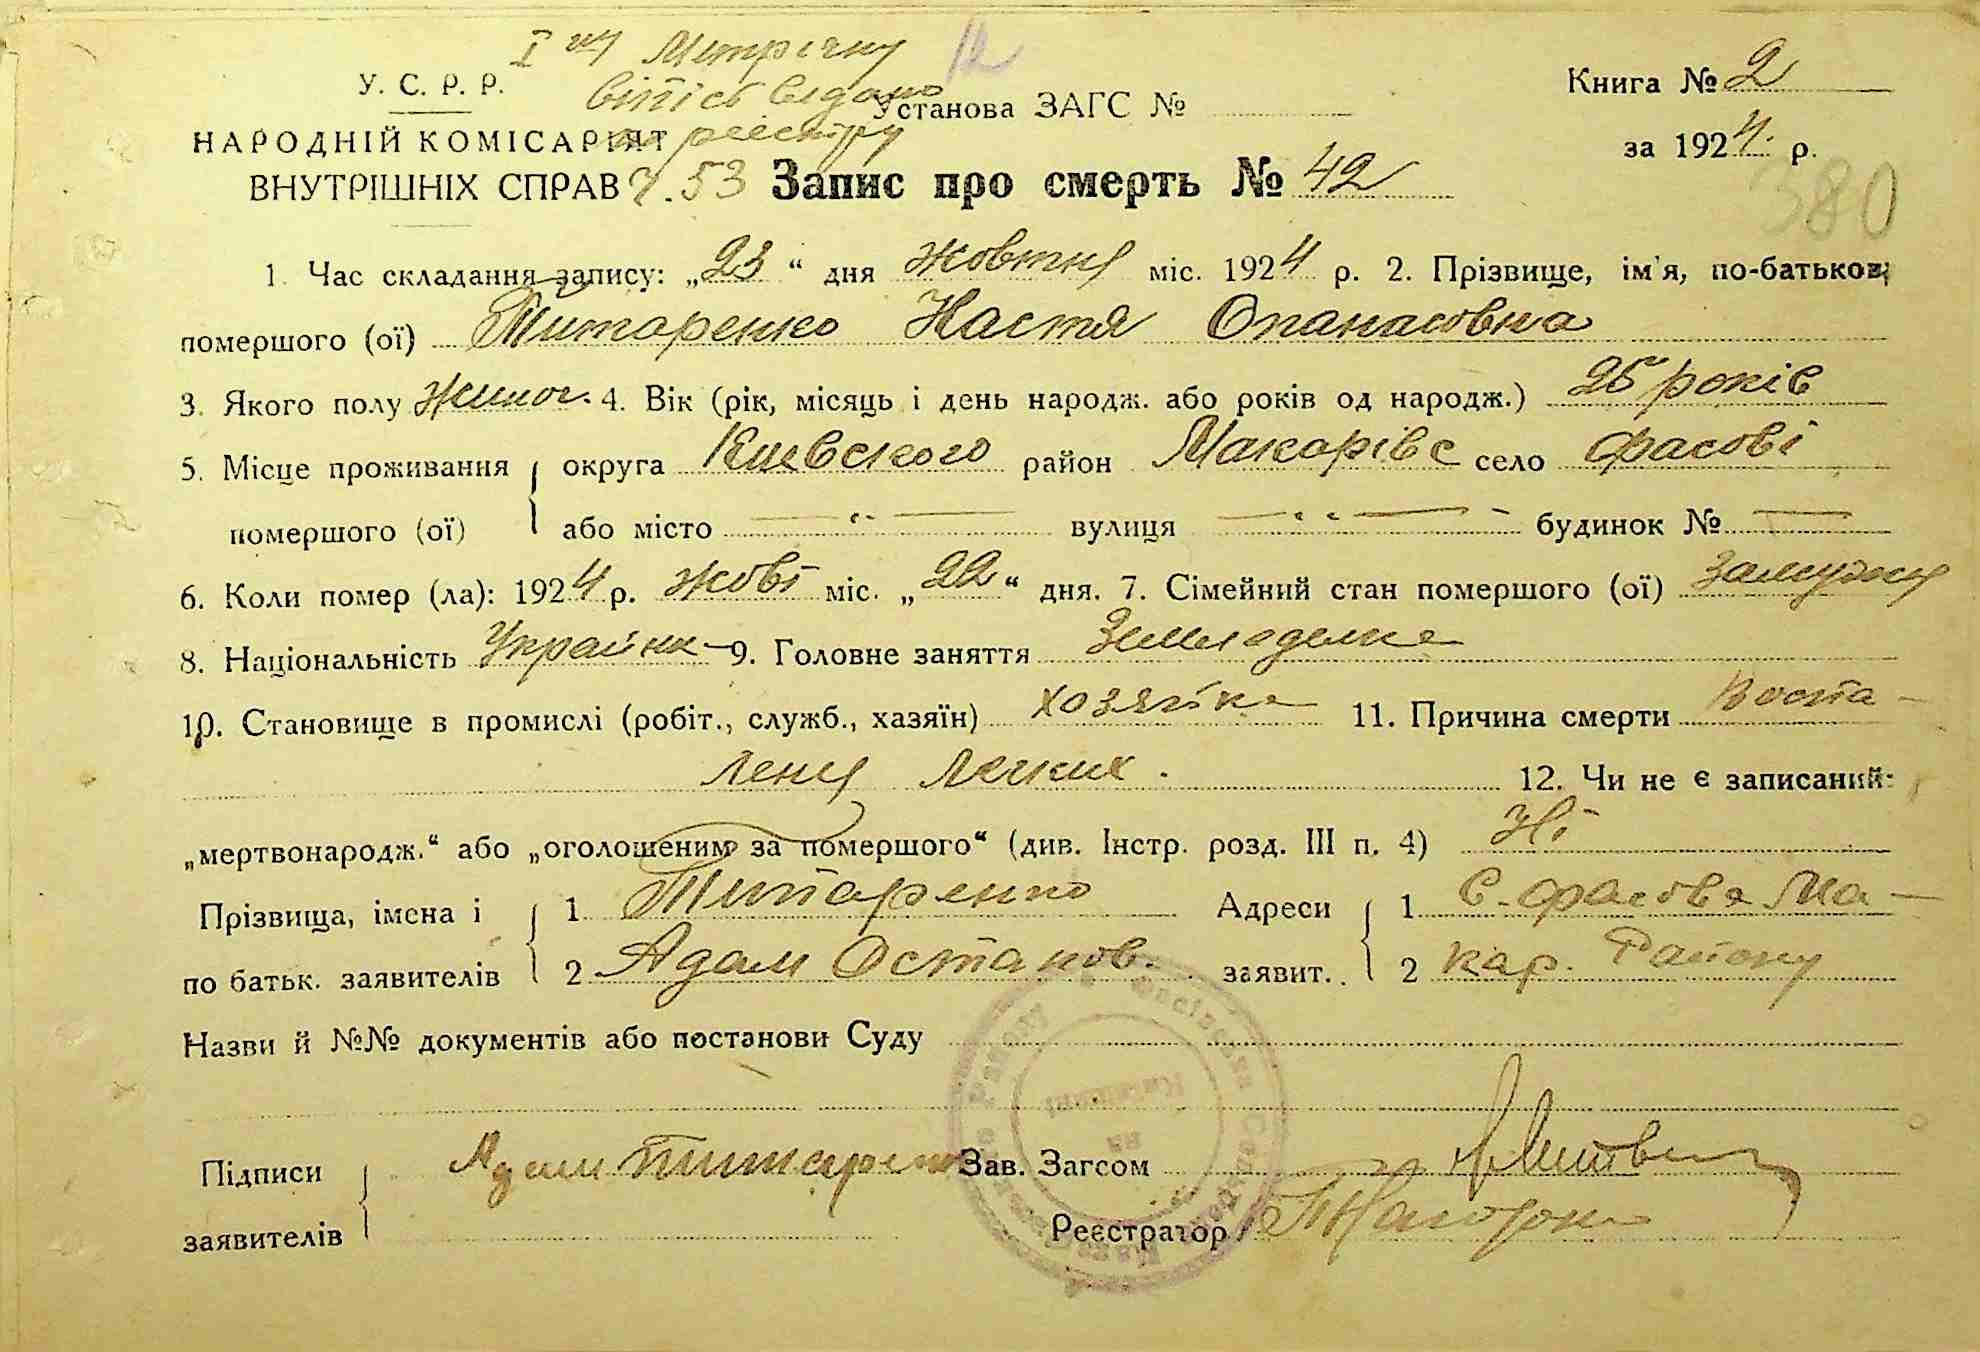 І шу Метричну 12
випісь видано
по реєстру
ч. 53
У. С. Р. Р.
НАРОДНІЙ КОМІСАРІЯТ
ВНУТРІШНІХ СПРАВ
Установа ЗАГС №
Книга № 2
за 1924 р.
Запис про смерть № 42
380
1. Час складання запису: „23“ дня жовтня міс. 1924 р. 2. Прізвище, ім'я, по-батькові
помершого (ої) Титаренко Настя Опанасовна
3. Якого полу жиноч. 4. Вік (рік, місяць і день народж. або років од народж.) 25 років
5. Місце проживання округа Киевского район Макарівс село Фасові
помершого (ої) або місто вулиця будинок №
6. Коли помер (ла): 1924 р. жовт міс. „22“ дня. 7. Сімейний стан помершого (ої) Замужня
8. Національність Україн 9. Головне заняття Земледелка
10. Становище в промислі (робіт., служб., хазяїн) хозяйка 11. Причина смерти Воспа-
ленія легких. 12. Чи не є записаний:
„мертвонародж.“ або „оголошеним за помершого“ (див. Інстр. розд. III п. 4) Ні
Прізвища, імена і 1 Титаренко Адреси 1 С. Фасова Ма-
по батьк. заявителів 2 Адам Остапов. заявит. 2 кар. Району
Назви й №№ документів або постанови Суду
Підписи Адам Титаренко Зав. Загсом
заявителів Реєстратор